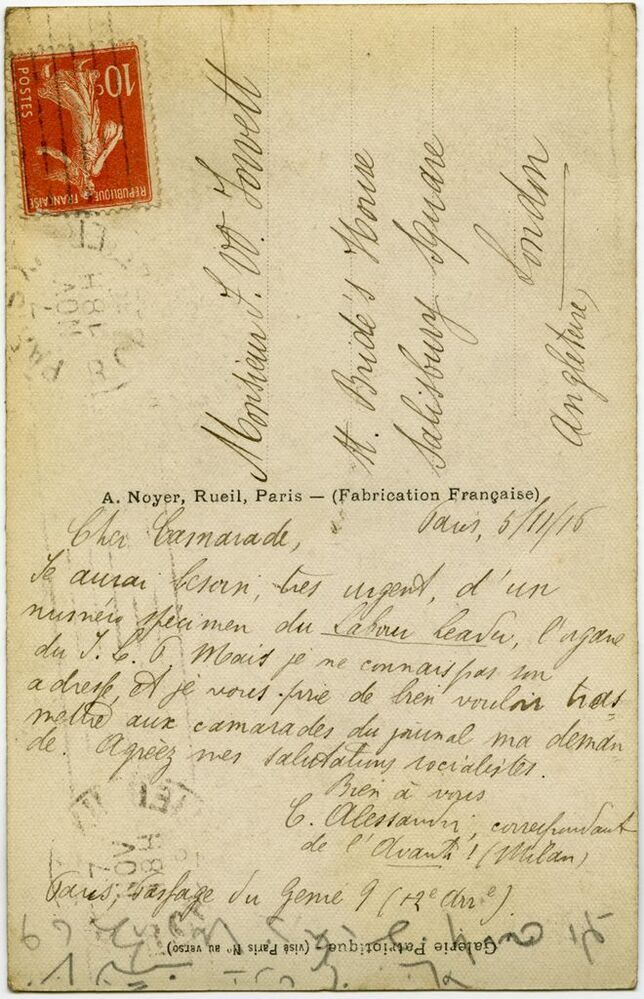 10c
POSTES
REPUBLIQUE FRANÇAISE
Monsieur F. W. Jowett
St. Bride's House
Salisbury Square
London
Angleterre,
A. Noyer, Rueil, Paris — (Fabrication Française)
Paris, 5/11/16
Cher Camarade,
Je aurai besoin, très urgent, d'un
numéro spécimen du Labour Leader, l'organe
du I. L. P. Mais je ne connais pas son
adresse, et je vous prie de bien vouloir tras=
mettre aux camarades du journal ma deman=
de. Agréez mes salutations socialistes.
Bien à vous
C. Alessandri, correspondant
de l'Avanti! (Milan)
Paris, Passage du Genie 9 (12e Arre)
Galerie Patriotique - (visé Paris No au verso)